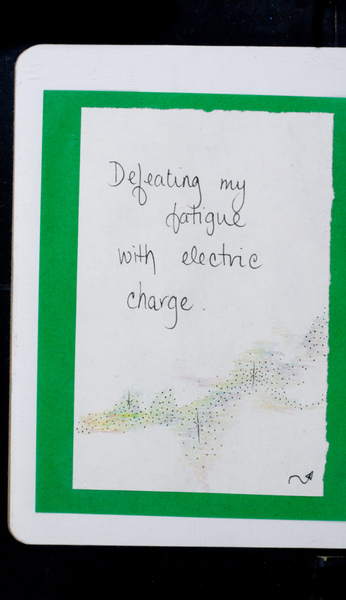 Defeating my
fatigue
with electric
charge.